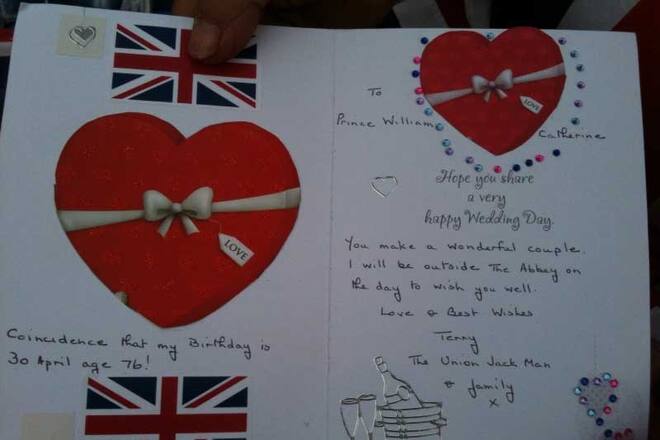 LOVE
Coincidence that my Birthday is
30 April age 76!
To
Prince William
LOVE
Catherine
Hope you share
a very
happy Wedding Day.
You make a wonderful couple.
I will be outside The Abbey on
the day to wish you well.
Love & Best Wishes
Terry
The Union Jack Man
& family
x